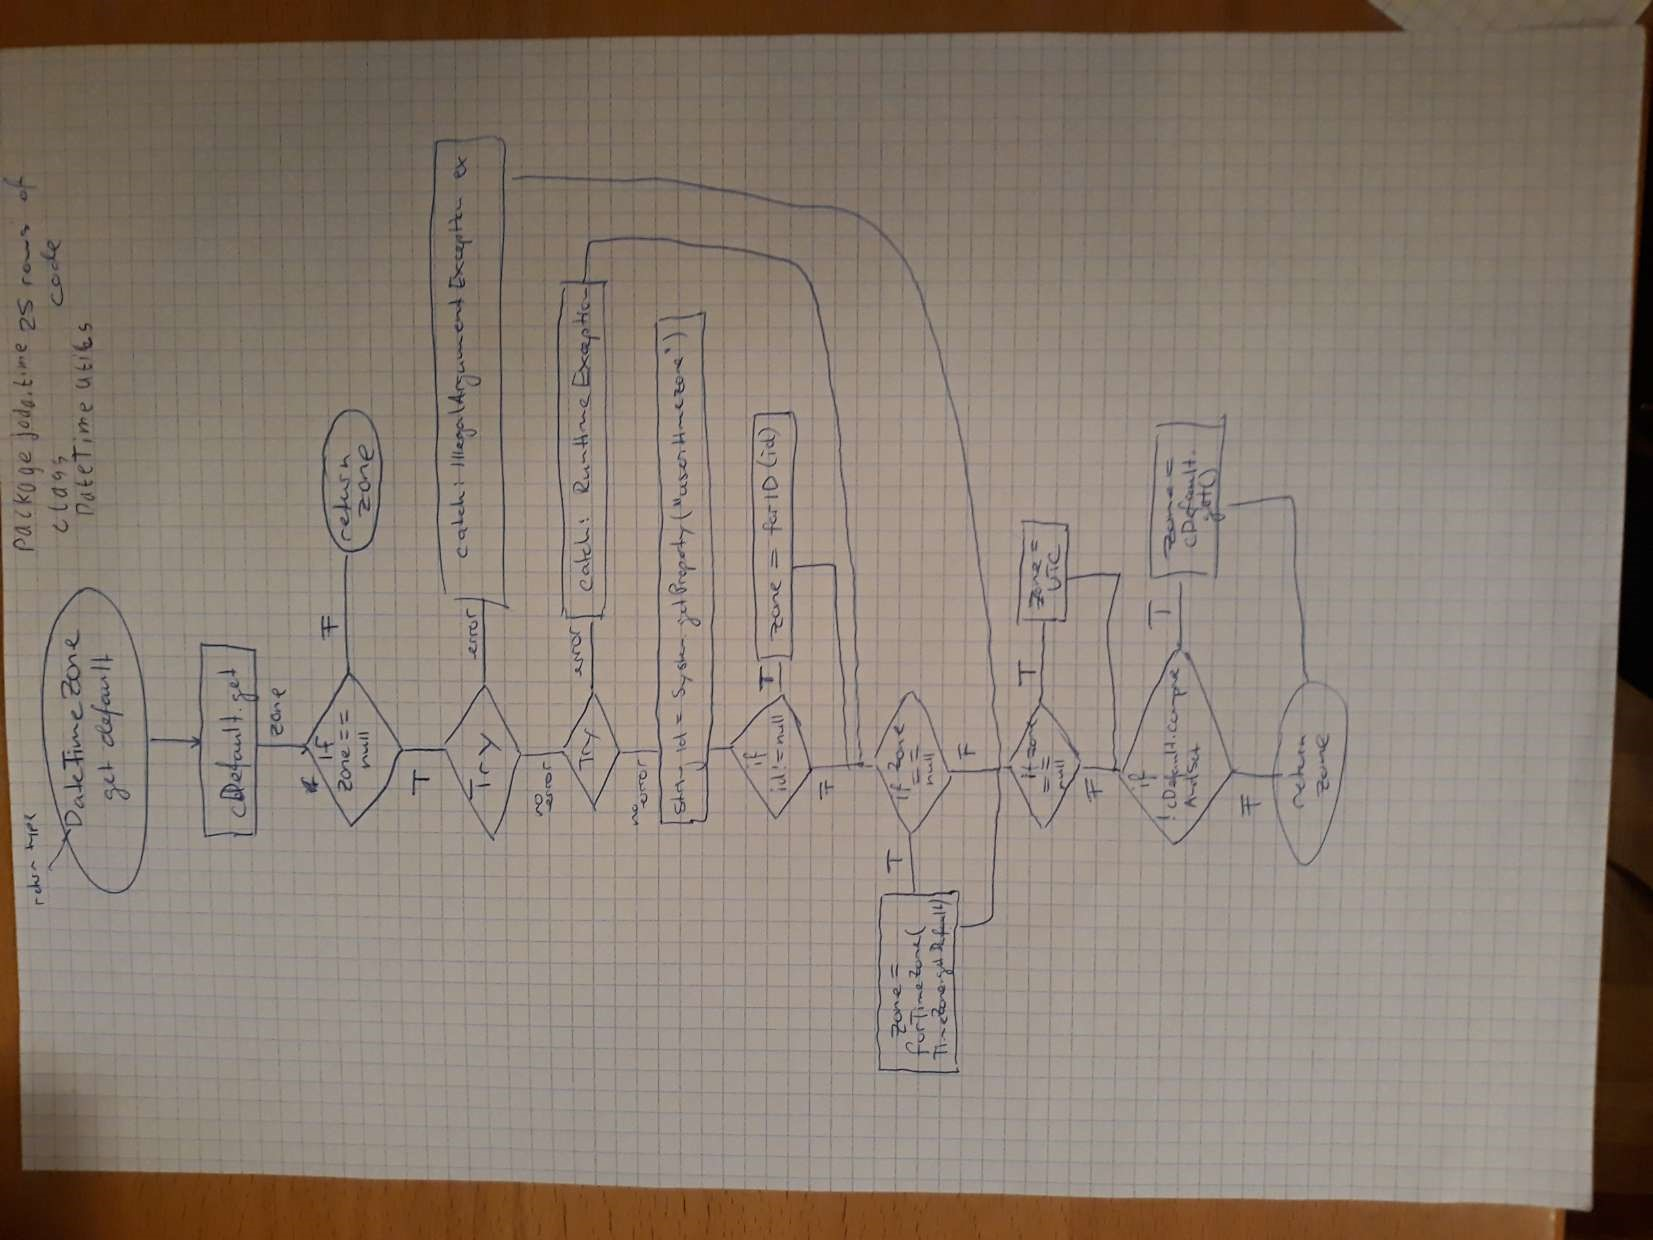 package joda.time 25 rows of
class code
DateTimeUtils
return type
DateTimeZone
get default
cDefault.get
zone
if
zone ==
null
F
return
zone
T
Try
error
catch: IllegalArgumentException ex
no
error
Try
error
catch: RuntimeException
no
error
String id = System.getProperty("user.timezone")
if
id != null
T
zone = forID(id)
F
if zone
==
null
T
zone =
forTimeZone(
TimeZone.getDefault()
F
if zone
==
null
T
zone =
UTC
F
if
!cDefault.compare
AndSet
T
zone =
cDefault.
get()
F
return
zone